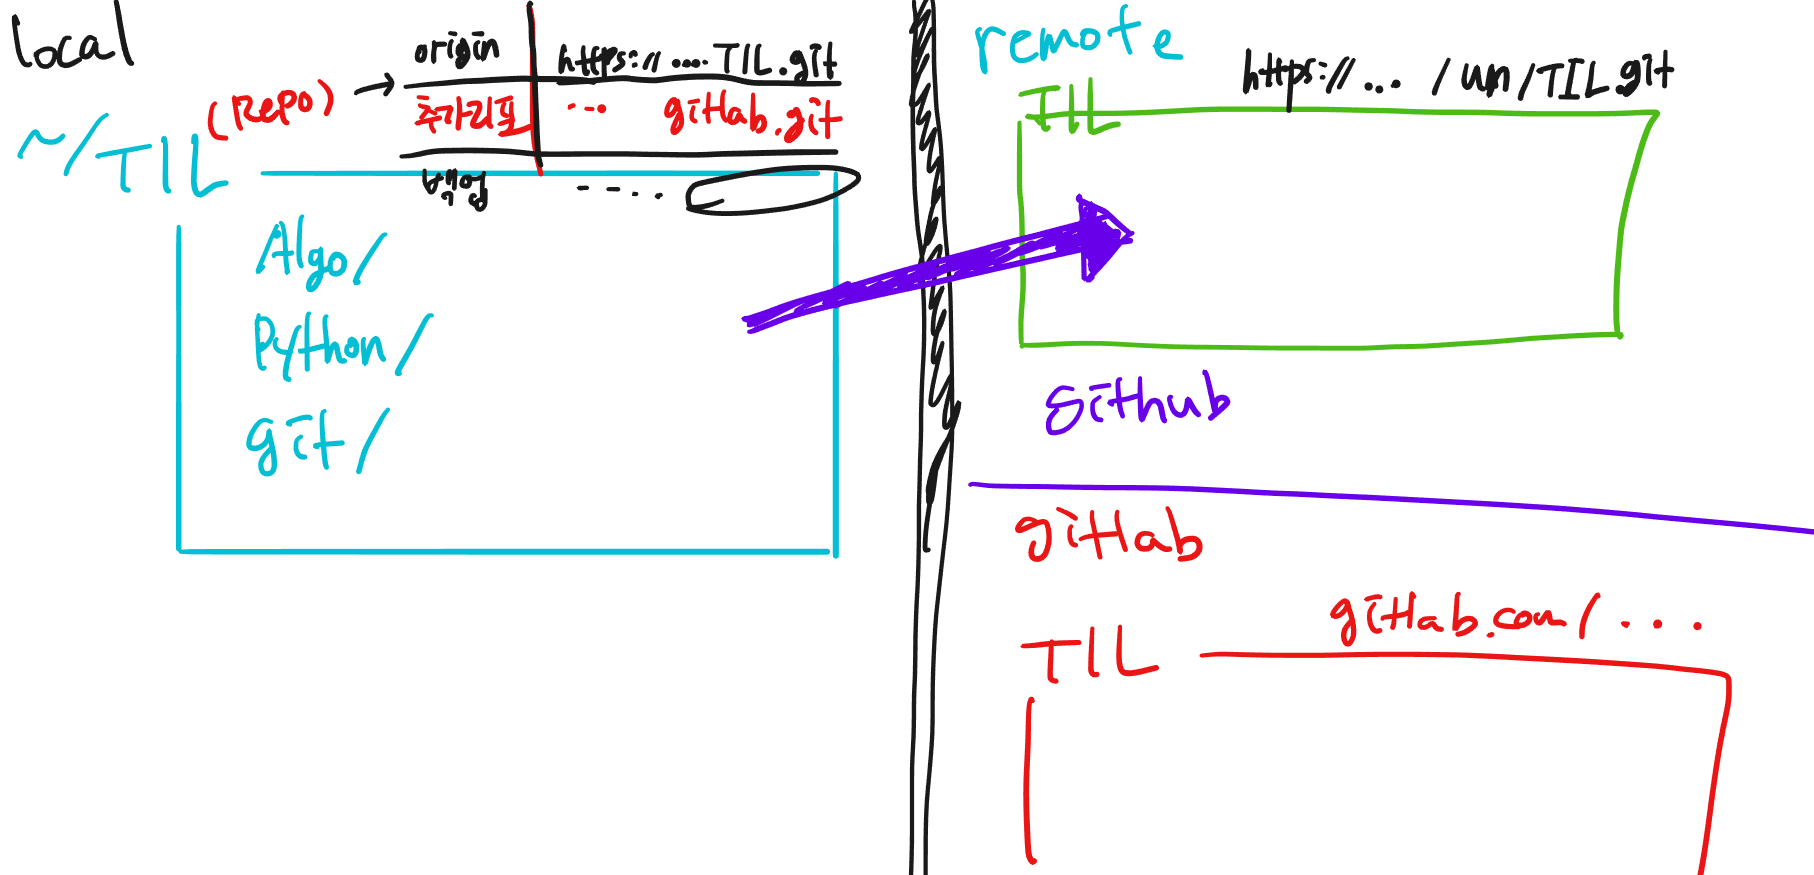 local
origin https://....TIL.git
(Repo) → 추가리포 ... gitlab.git
별명 ----.
~/TIL
Algo/
Python/
git/
remote
https://... /un/TIL.git
TIL
github
gitlab
gitlab.com/....
TIL